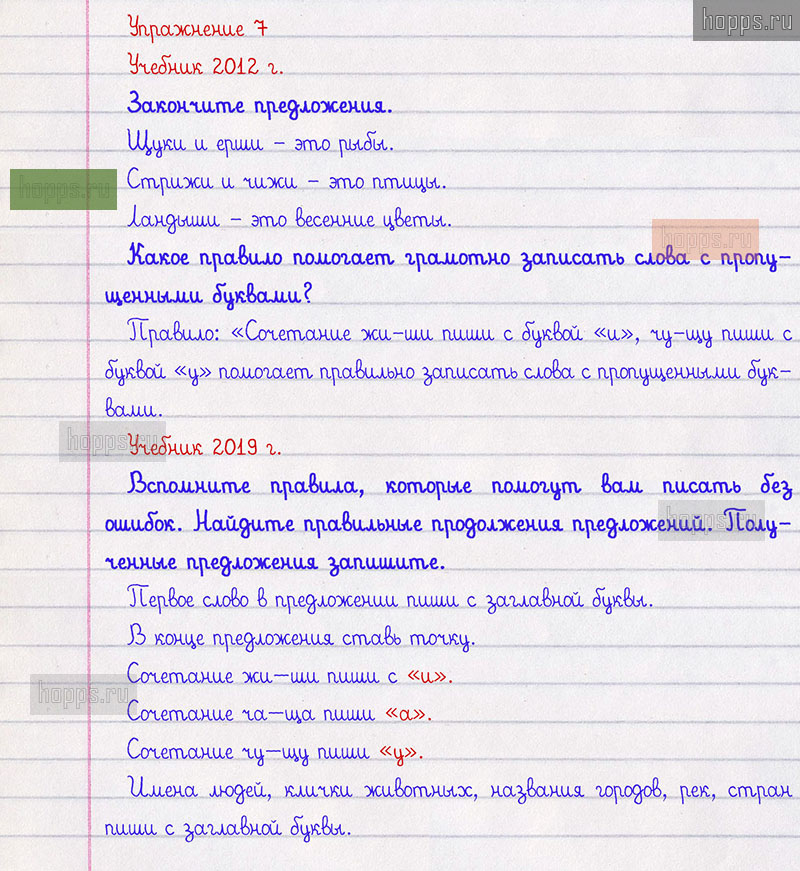 hopps.ru
Упражнение 7
Учебник 2012 г.
Закончите предложения.
Щуки и ерши – это рыбы.
Стрижи и чижи – это птицы.
hopps.ru
Ландыши – это весенние цветы.
hopps.ru
Какое правило помогает грамотно записать слова с пропу-
щенными буквами?
Правило: «Сочетание жи-ши пиши с буквой «и», чу-щу пиши с
буквой «у» помогает правильно записать слова с пропущенными бук-
вами.
hopps.ru
Учебник 2019 г.
Вспомните правила, которые помогут вам писать без
ошибок. Найдите правильные продолжения предложений. Полу-
hopps.ru
ченные предложения запишите.
Первое слово в предложении пиши с заглавной буквы.
В конце предложения ставь точку.
Сочетание жи–ши пиши с «и».
hopps.ru
Сочетание ча–ща пиши «а».
Сочетание чу–щу пиши «у».
Имена людей, клички животных, названия городов, рек, стран
пиши с заглавной буквы.